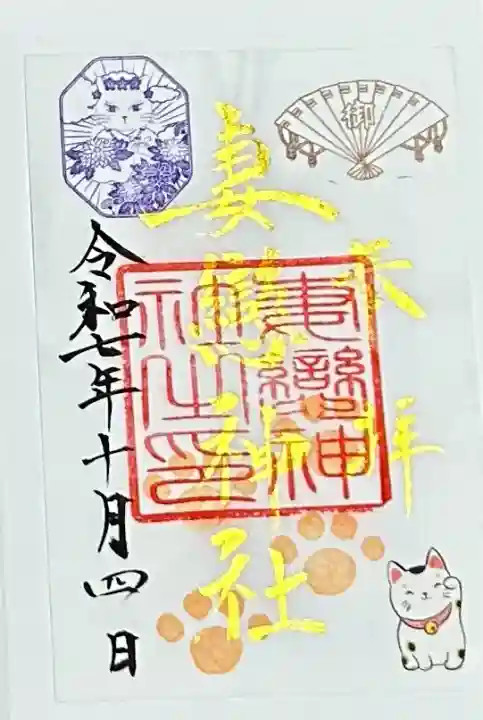 御
奉拝
妻戀神社
妻戀神
社之印
令和七年十月四日